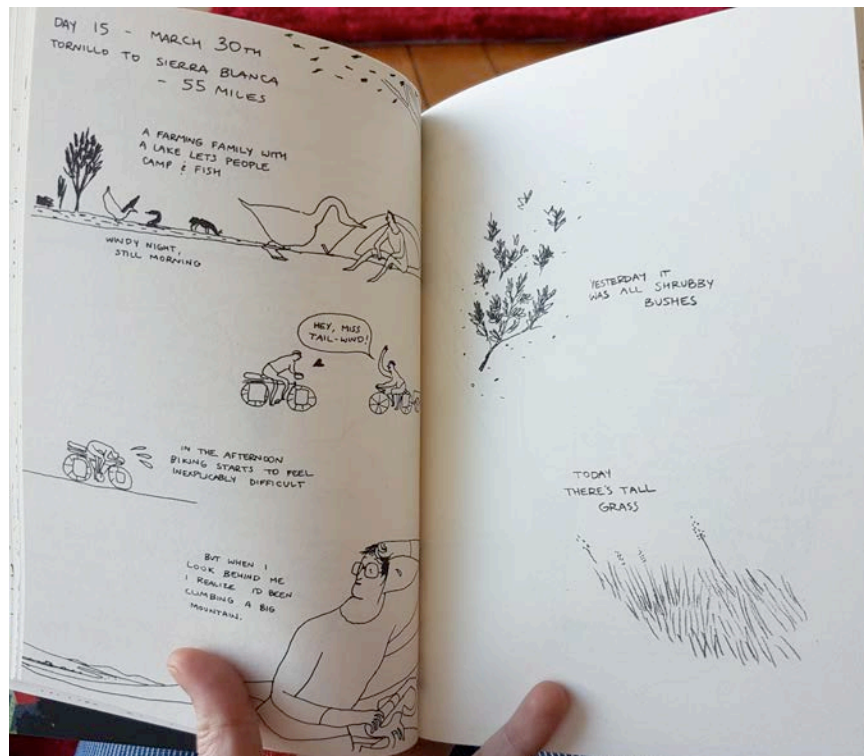 DAY 15 - MARCH 30TH
TORNILLO TO SIERRA BLANCA
- 55 MILES
A FARMING FAMILY WITH
A LAKE LETS PEOPLE
CAMP & FISH
WINDY NIGHT,
STILL MORNING
HEY, MISS
TAIL-WIND!
IN THE AFTERNOON
BIKING STARTS TO FEEL
INEXPLICABLY DIFFICULT
BUT WHEN I
LOOK BEHIND ME
I REALIZE I'D BEEN
CLIMBING A BIG
MOUNTAIN.
YESTERDAY IT
WAS ALL SHRUBBY
BUSHES
TODAY
THERE'S TALL
GRASS